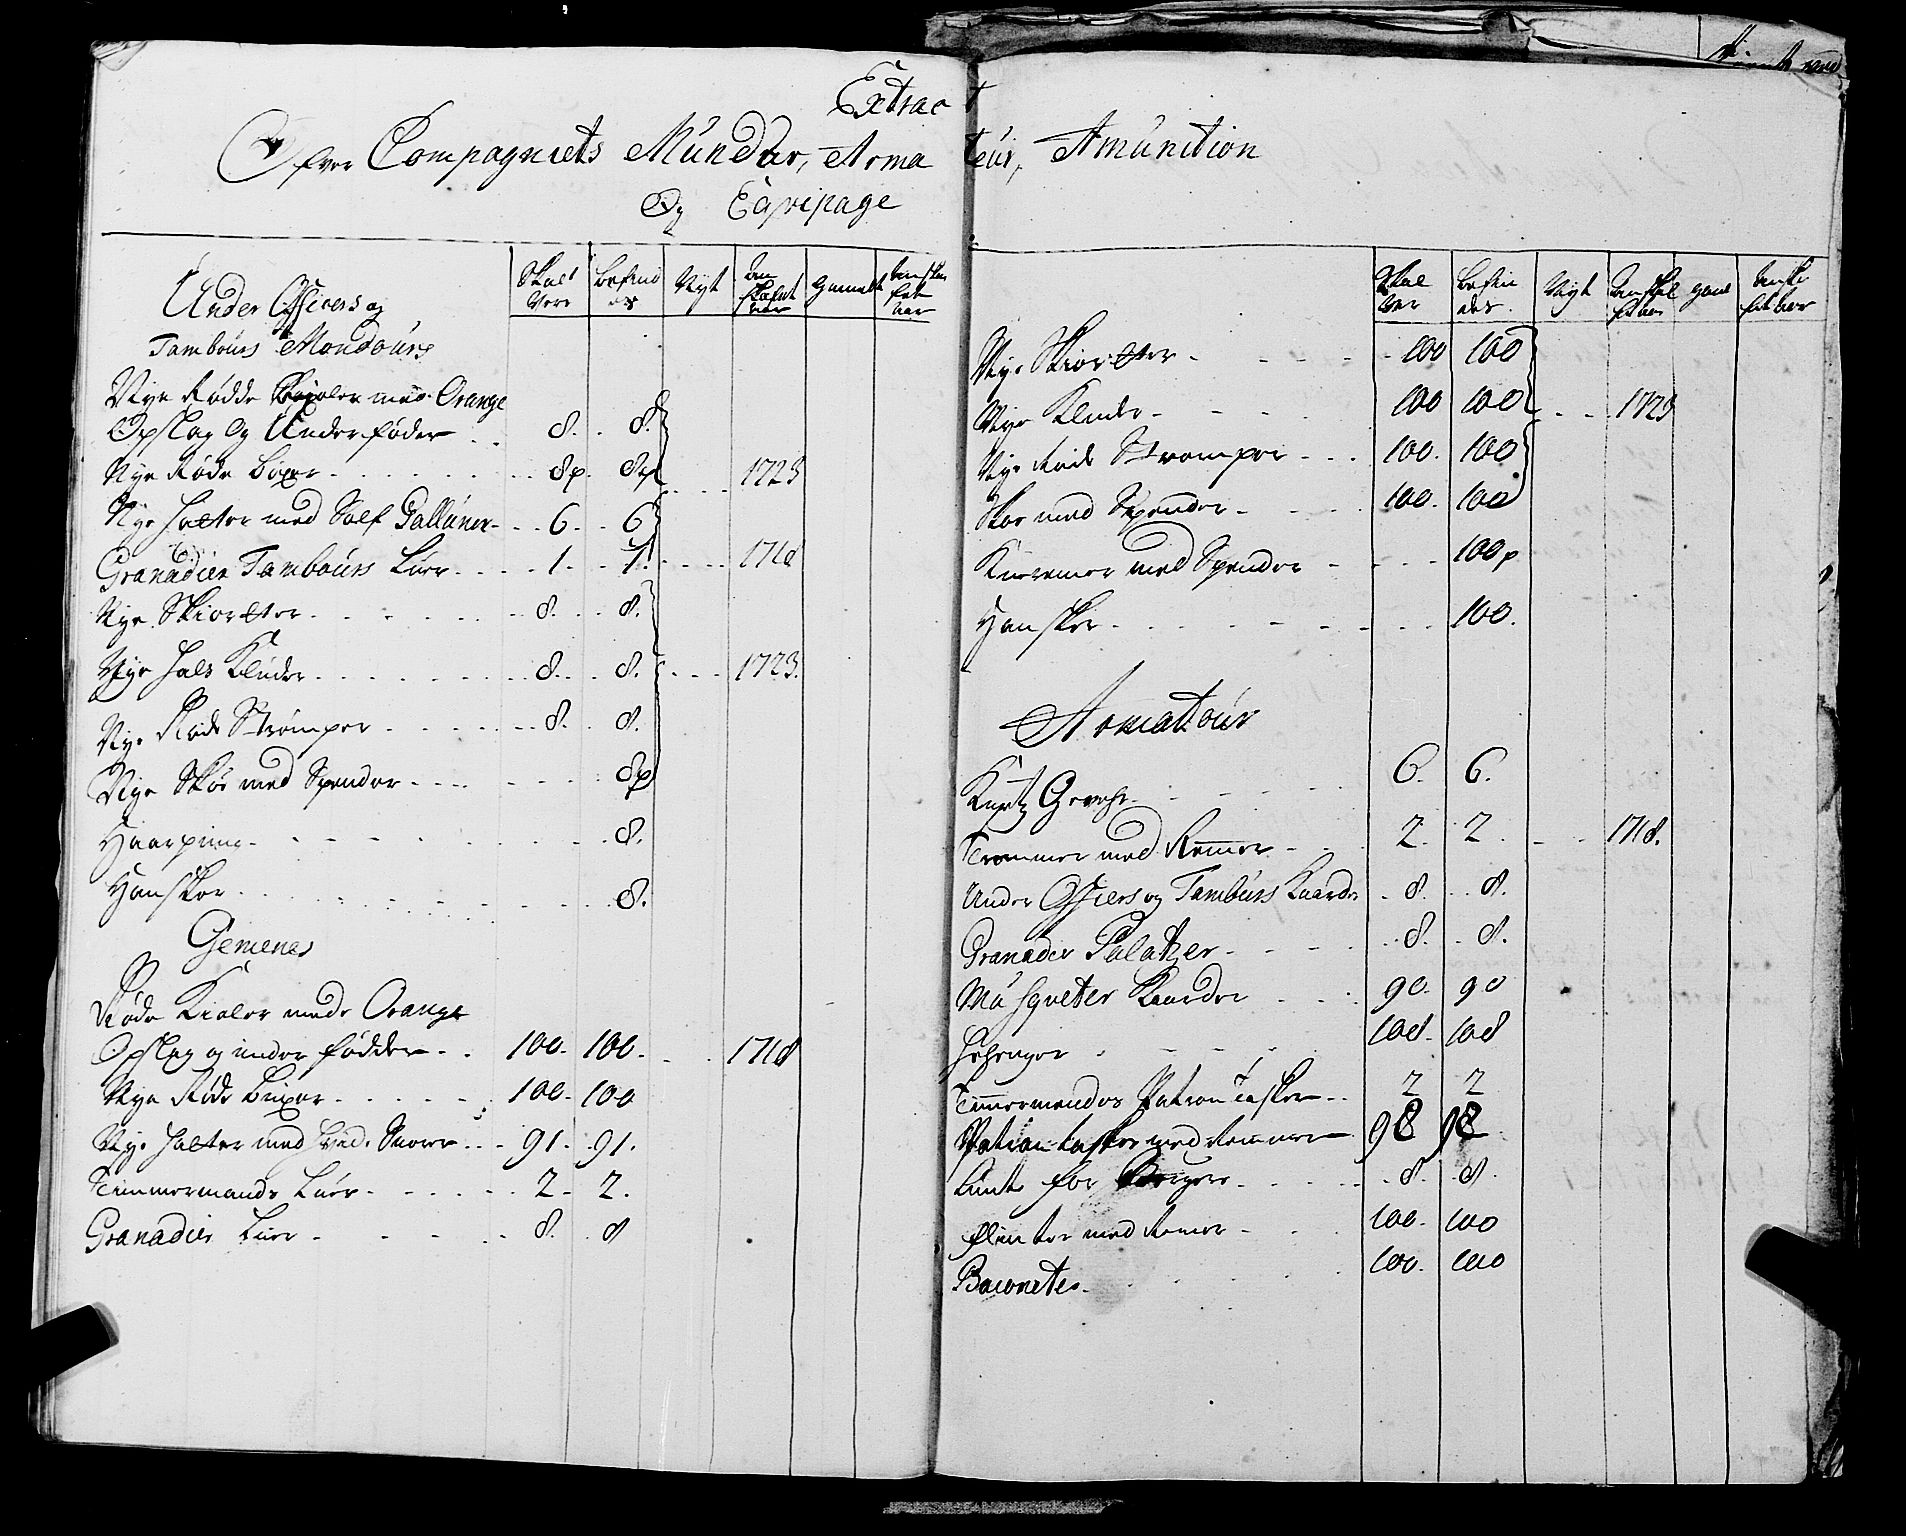 Extract
Ofver Compagniets Mundur, Armateur, Amunition
Og Eqvipage
Under Officers og
Tambours Mondours
Skal Vere
Befindes
Nyt
Anskafet aar
Gammelt
Anskafet aar
Nye Rødde Kioler med Orange
Opslag Og Under foder . . 8. . 8.
Nye Røde Buxer . . 8p. 8p . . 1723
Nye Hatter med Sølf Gallüner . . 6. . 6
Granadier Tambours Luer . . 1. . 1. . . 1718
Nye Skiorter . . 8. . 8.
Nye Hals Klüder . . 8. . 8. . . 1723.
Nye Røde Strømper . . 8. . 8.
Nye Skoe med Spender . . 8p
Haarpung . . 8.
Hansker . . 8.
Gemenes
Røde Kioler mede Orange
Opslag og under fødder . . 100. 100. . . 1718
Nye Røde Buxer . . 100. 100
Nye Hatter med Hvide Snorer . . 91. 91.
Timmermands Luer . . 2. 2.
Granadier Luer . . 8. . 8
Skal Ver
Befindes
Nyt
Anskafet aar
Gaml
Anskafet aar
Nye Skiorter . . 100 100
Nye Klude . . 100 100 . . 1723
Nye Røde Strømper . . 100. 100
Skoe med Spender . . 100. 100
Knæremer med Spender . . 100p
Hansker . . 100.
Armatour
Kurtz Gevehr . . 6. 6.
Trommer med Remer . . 2. 2. . . 1718.
Under Officers og Tamburs Kaarder . 8. . 8.
Granadier Palatzer . . 8. . 8.
Musqveter Kaarder . . 90. 90
Gehenger . . 108. 108
Timmermendes Patron Tasker . . 2 2
Patron tasker med Remmer 98 98
Lunte for . . 8. . 8.
flinter med Remer . . 100. 100
Baionetes . . 100. 100